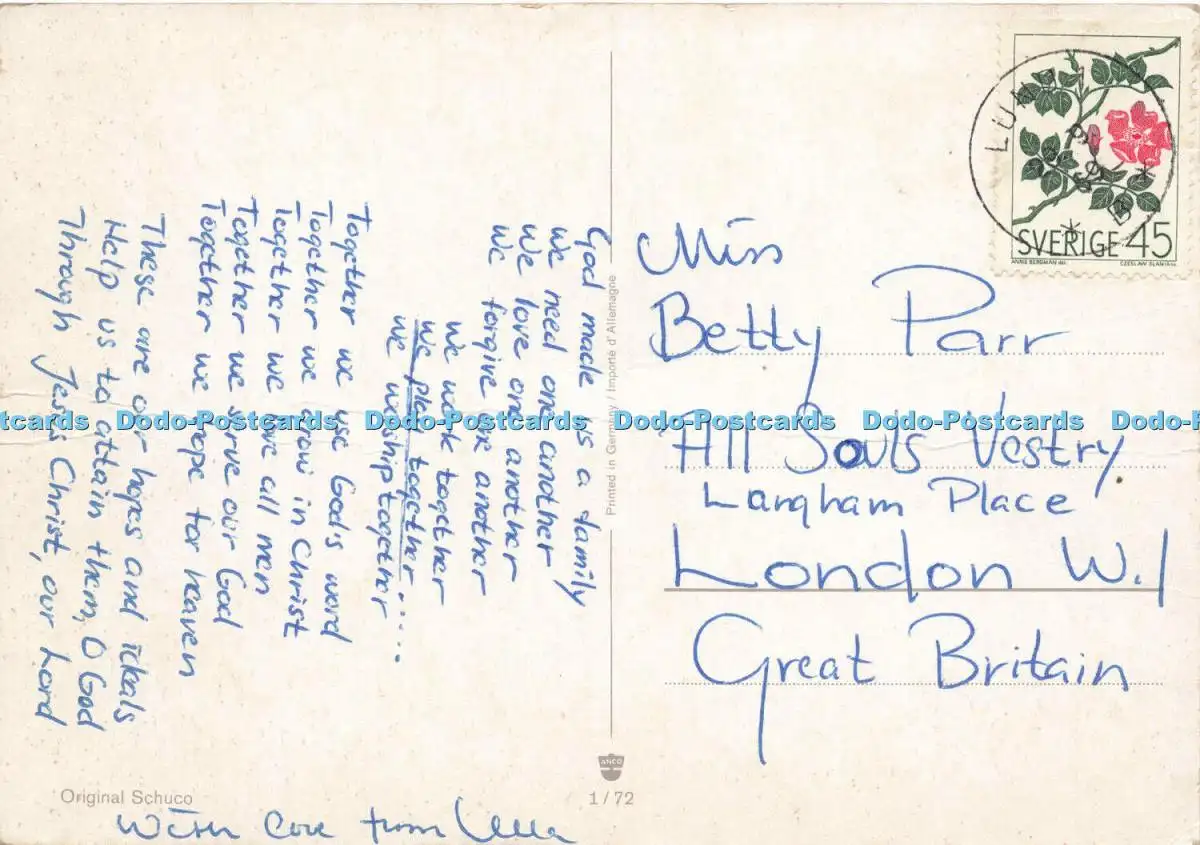 God made us a family
We need one another
We love one another
We forgive one another
We work together
We play together.....
We worship together
Together we use God's word
Together we grow in Christ
Together we love all men
Together we serve our God
Together we hope for heaven
These are our hopes and ideals
Help us to attain them, O God
Through Jesus Christ, our Lord
With love from Ulla
Original Schuco
Printed in Germany / Importé d'Allemagne
ANCO
1/72
LUND 1
SVERIGE 45
ANNIE BERGMAN del.
CZESLAW SLANIA sc.
Miss
Betty Parr
All Souls Vestry
Langham Place
London W.1
Great Britain
Dodo-Postcards Dodo-Postcards Dodo-Postcards Dodo-Postcards Dodo-Postcards